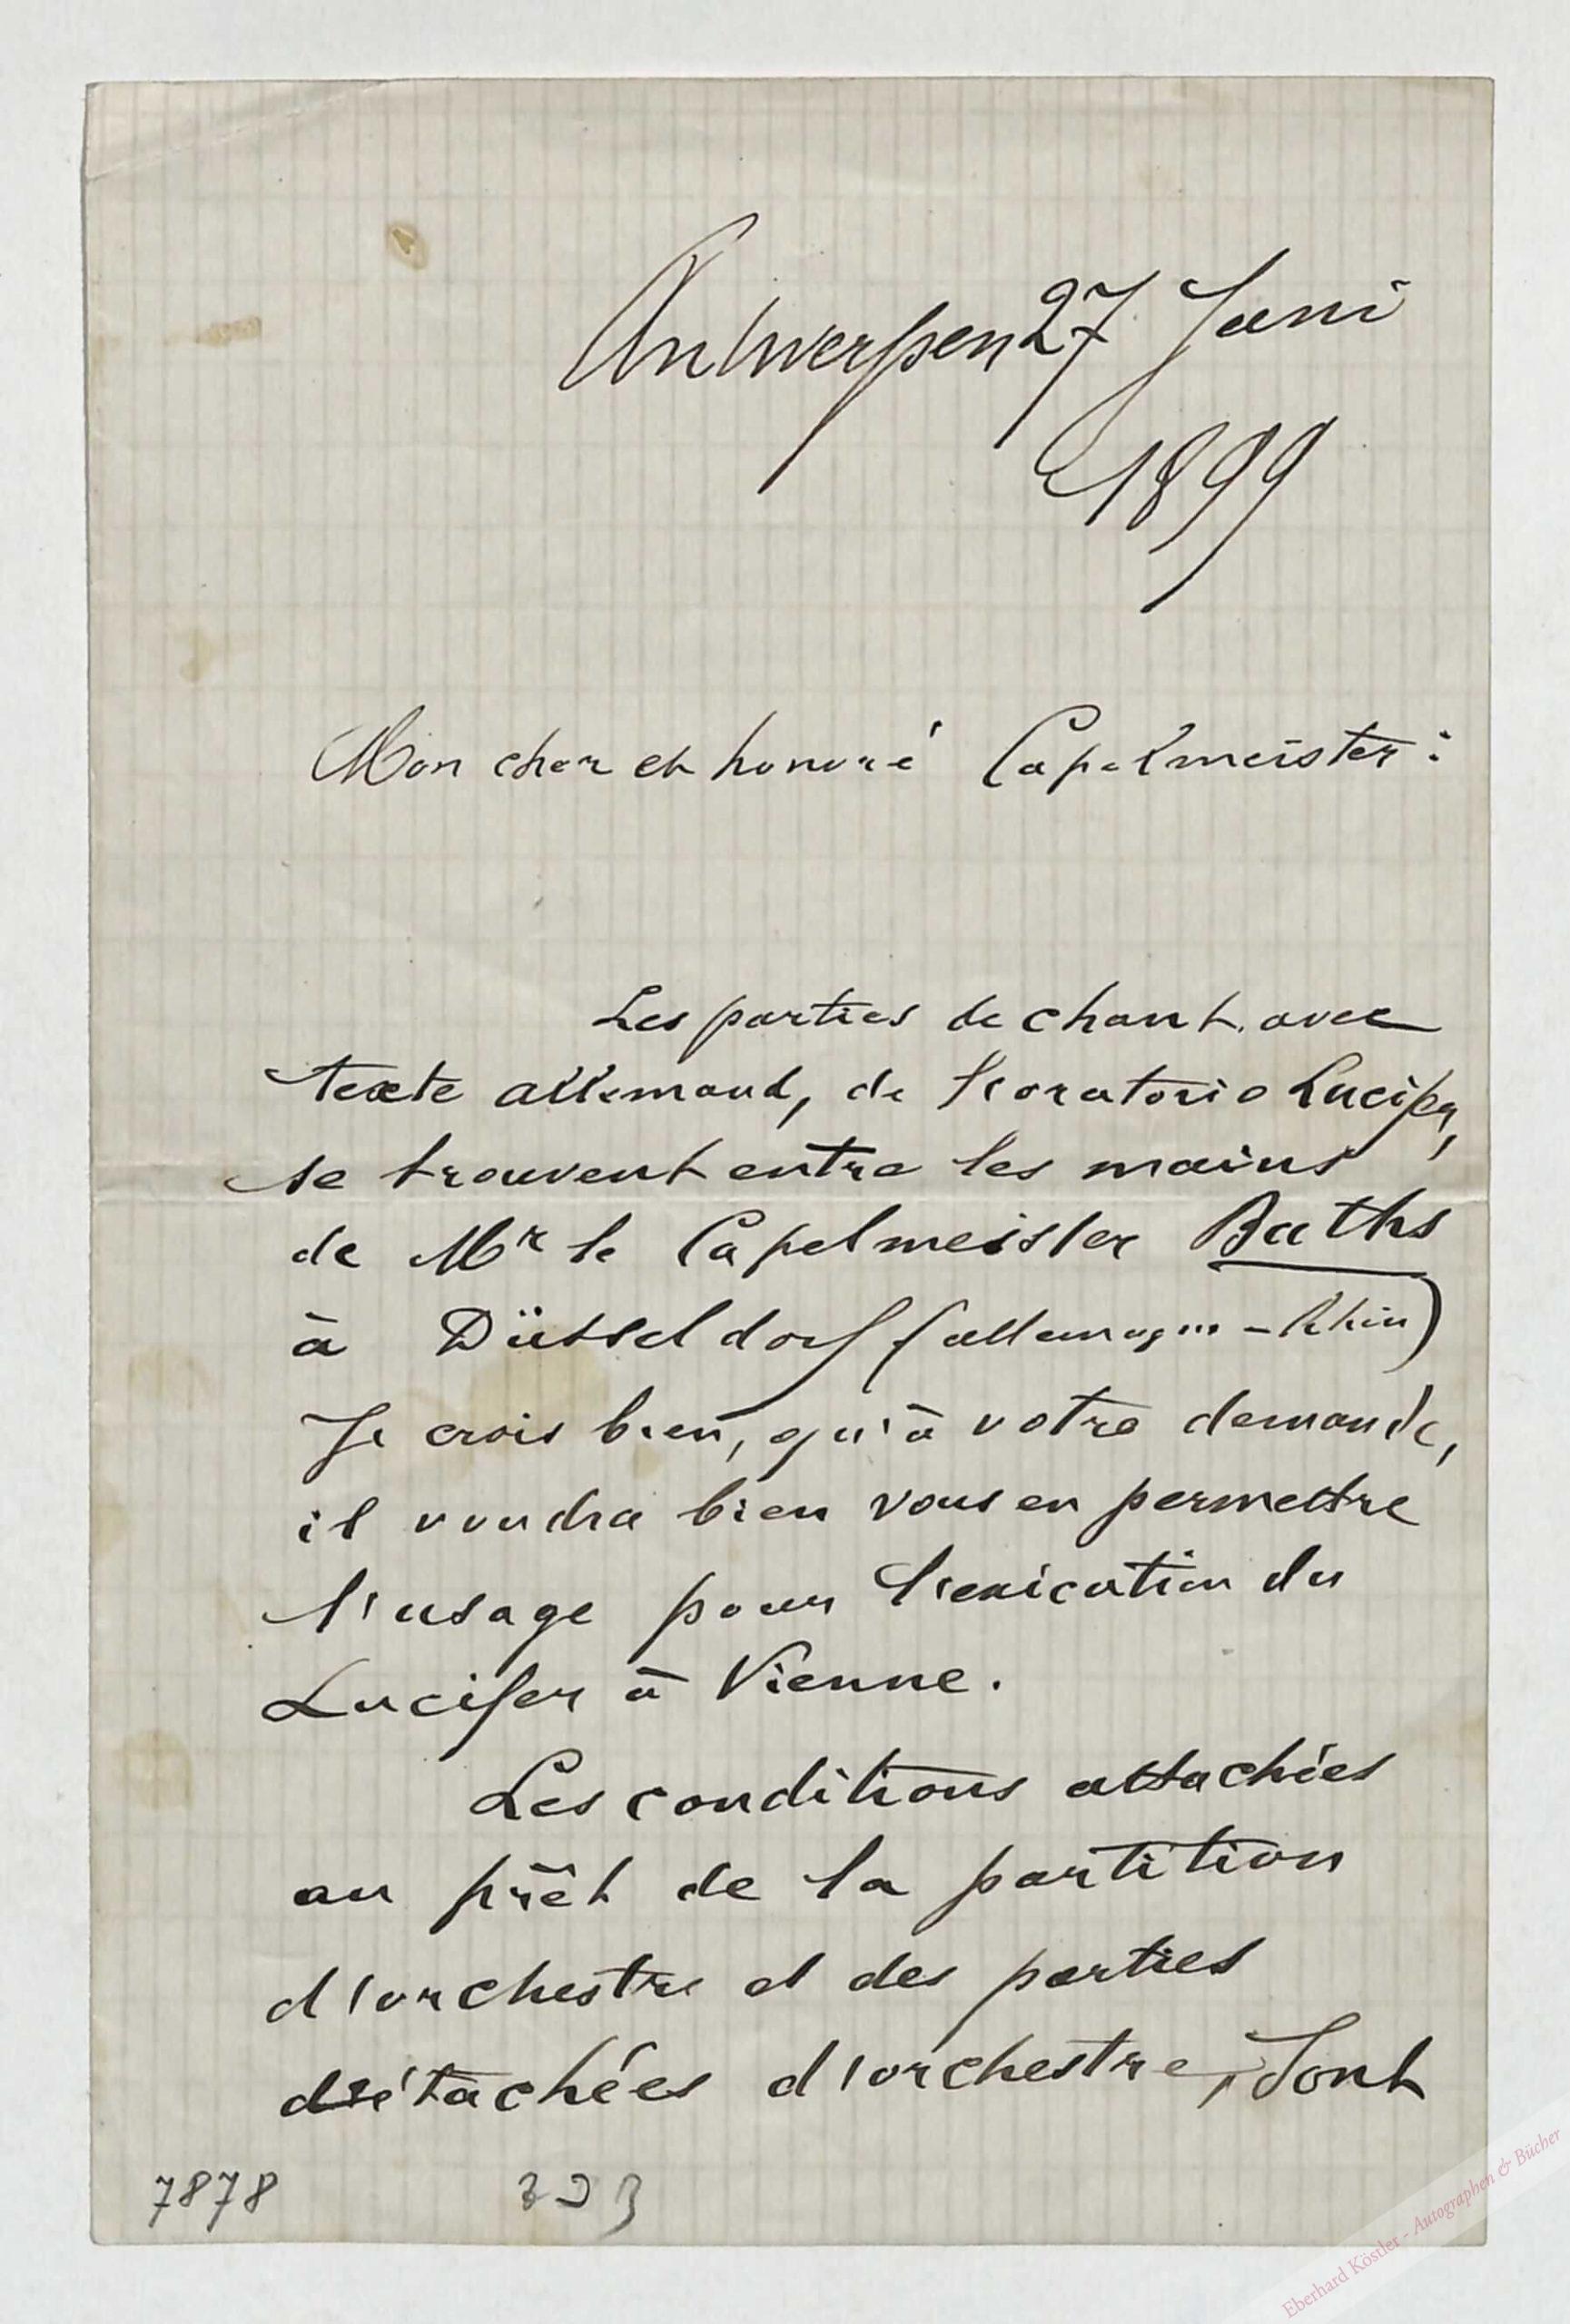 Antwerpen 27 Juni
1899
Mon cher et honoré Capelmeister:
Les parties de chant avec
texte allemand, de l'oratorio Lucifer,
se trouvent entre les mains
de Mr le Capelmeister Buths
à Düsseldorf (allemagne - Rhin)
Je crois bien, qu'à votre demande,
il voudra bien vous en permettre
l'usage pour l'exécution du
Lucifer à Vienne.
Les conditions attachées
au prêt de la partition
d'orchestre et des parties
détachées d'orchestre, sont
7878
Eberhard Köstler - Autographen & Bücher